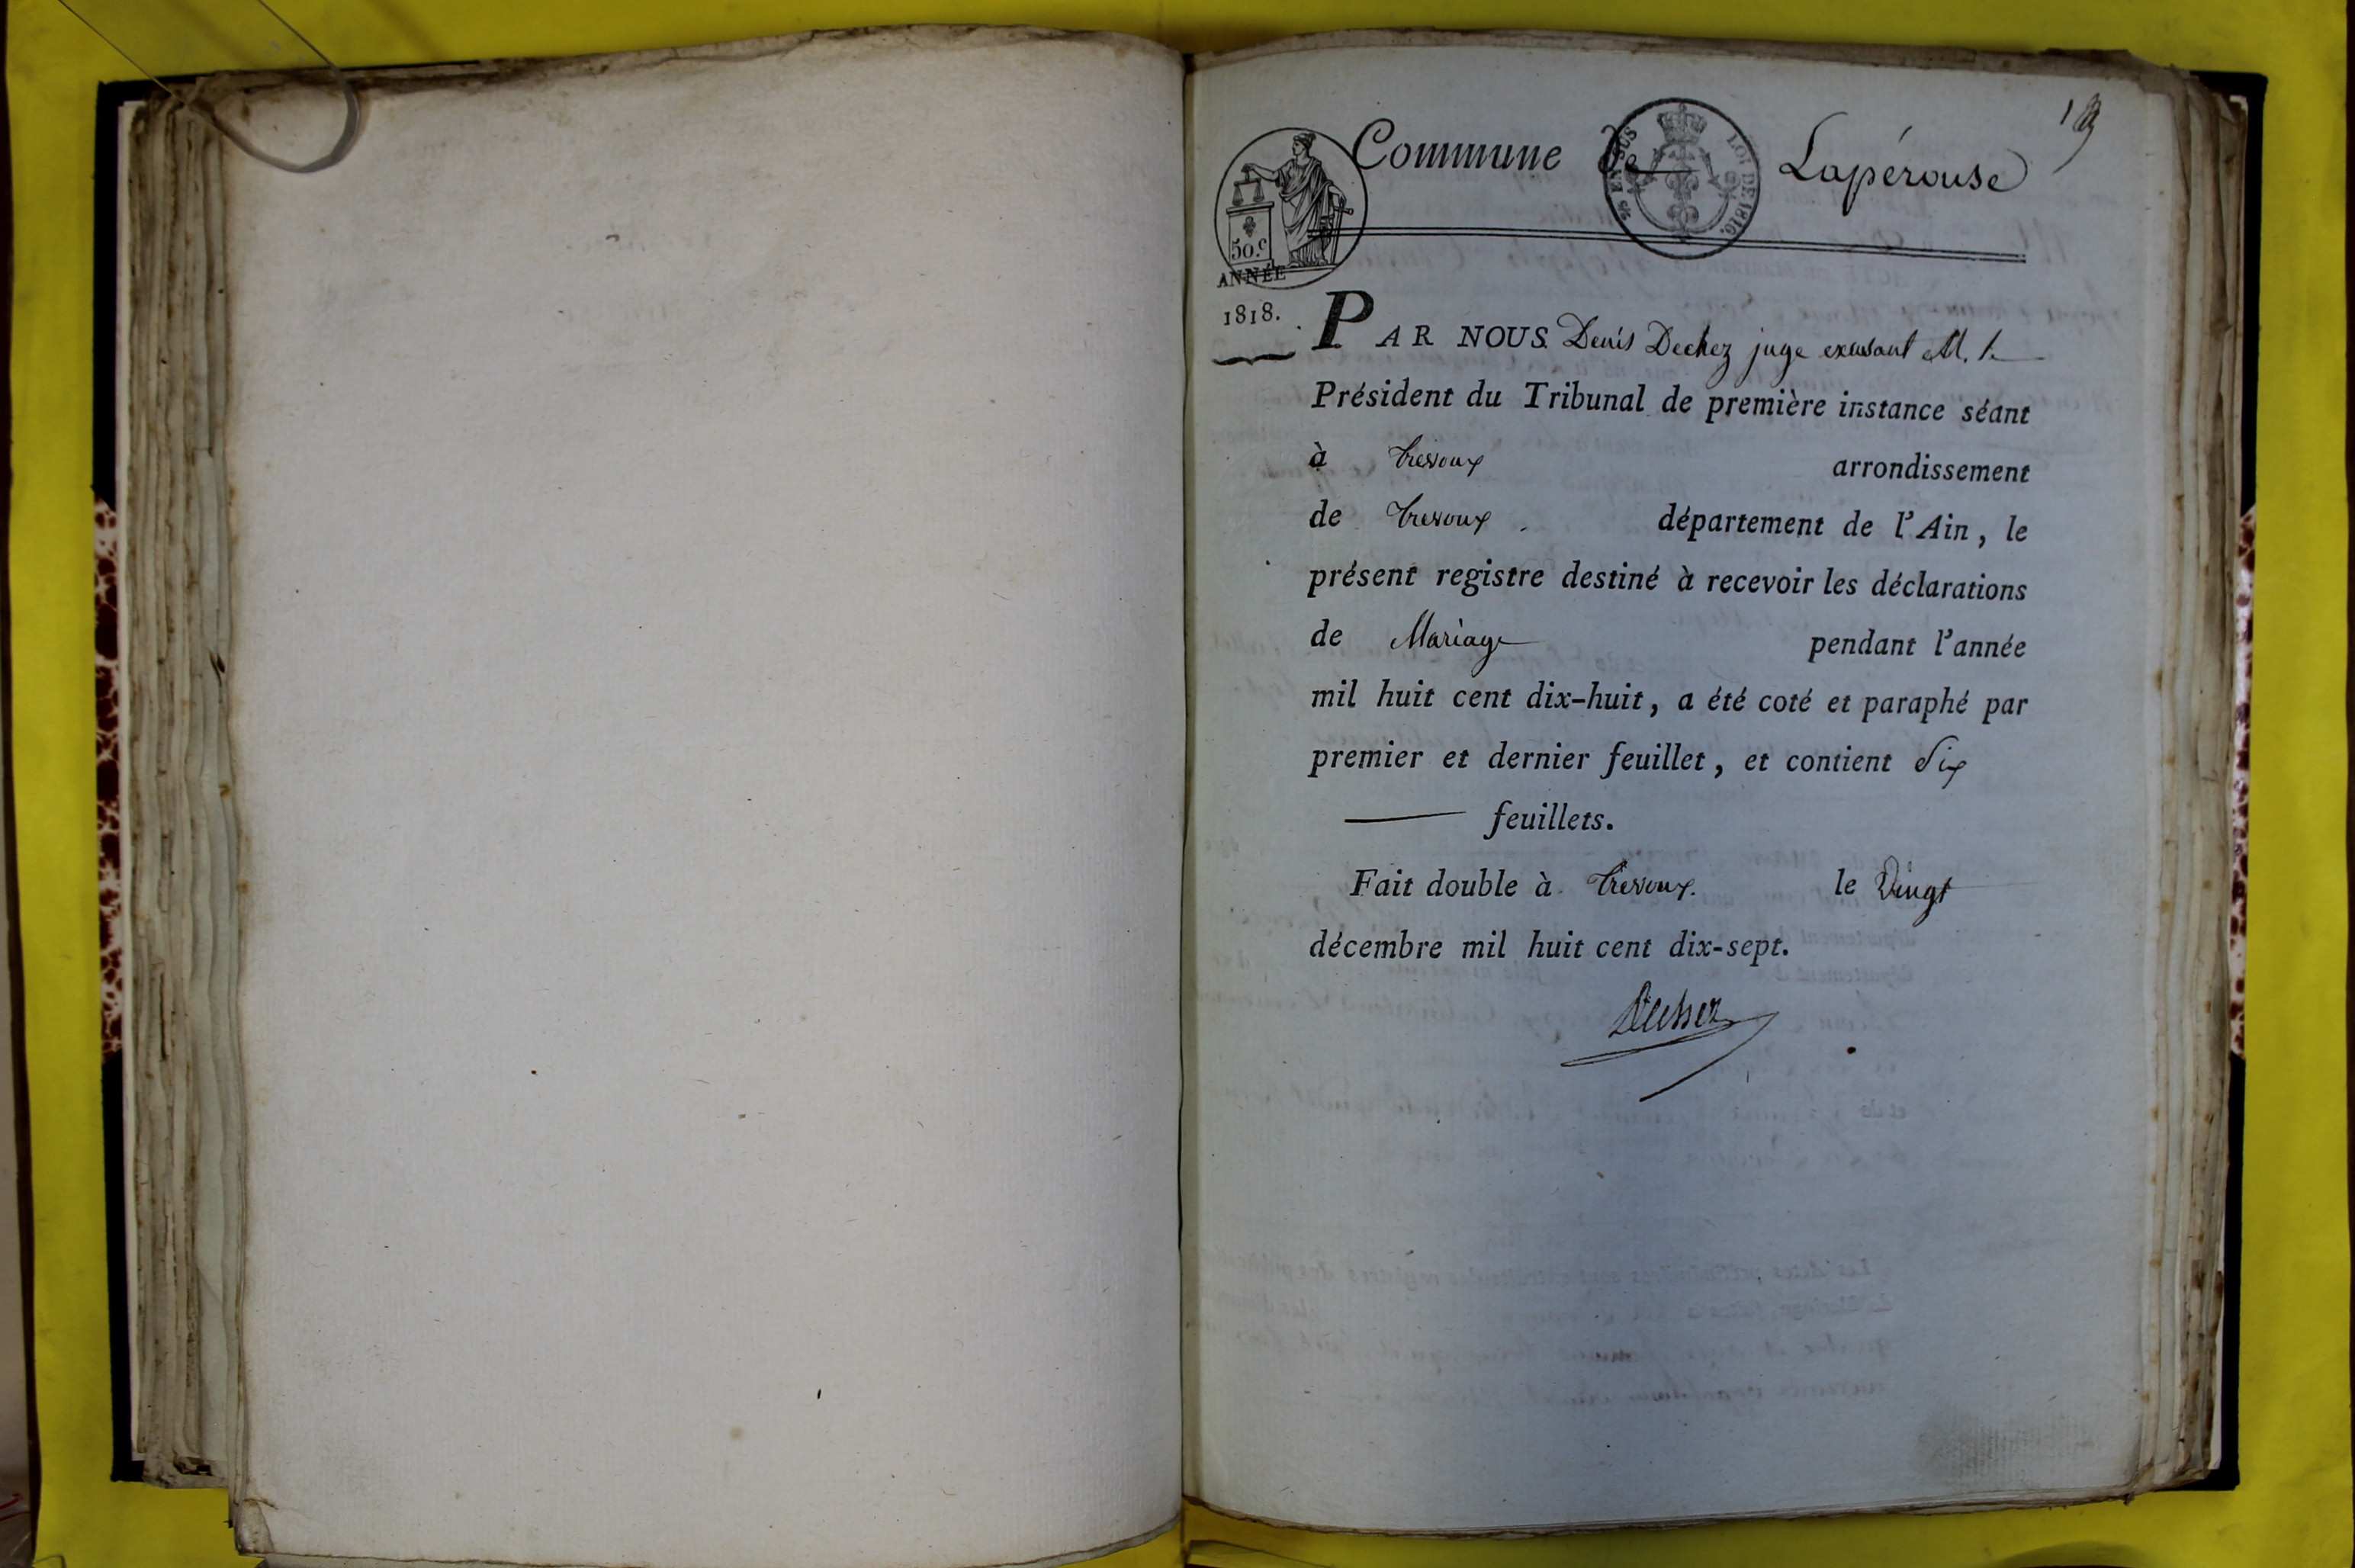 Commune de Lapérouse
EN SUS
LOI DE 1816.
50.c
ANNÉE
1818.
PAR NOUS Denis Dechez juge excusant M. le
Président du Tribunal de première instance séant
à Trevoux arrondissement
de Trevoux département de l'Ain, le
présent registre destiné à recevoir les déclarations
de Mariage pendant l'année
mil huit cent dix-huit, a été coté et paraphé par
premier et dernier feuillet, et contient Six
feuillets.
Fait double à Trevoux. le Vingt
décembre mil huit cent dix-sept.